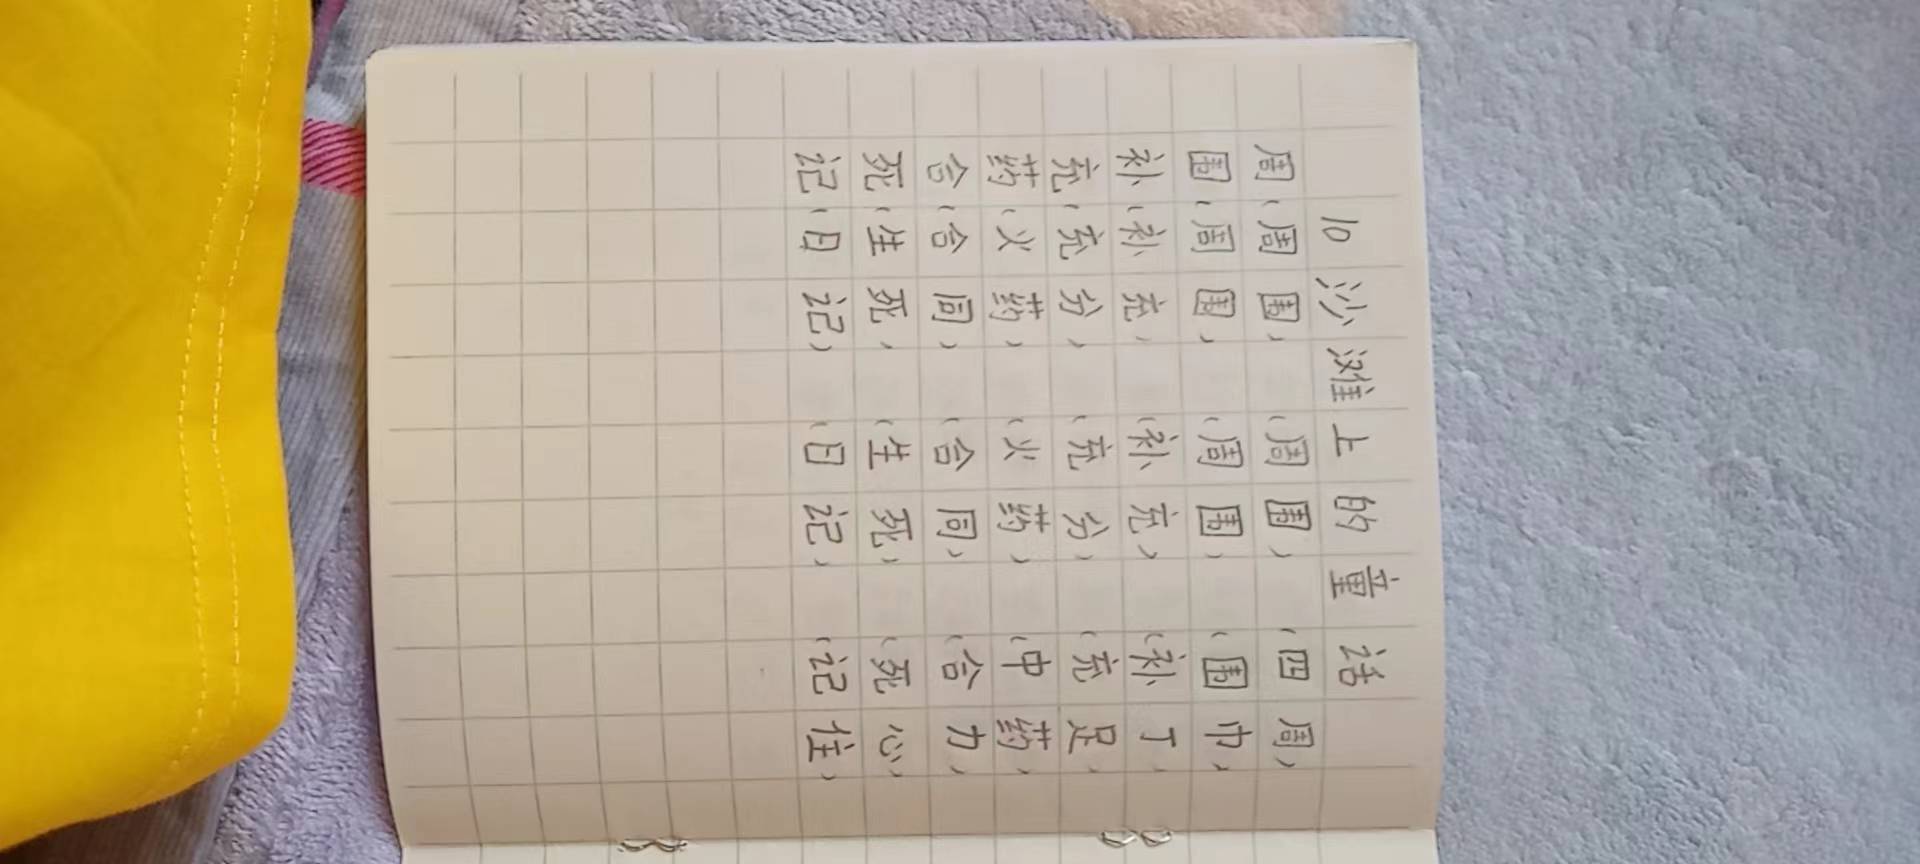 10沙滩上的童话
周(周围) (周围) (四周)
围(周围) (周围) (围巾)
补(补充) (补充) (补丁)
充(充分) (充分) (充足)
药(火药) (火药) (中药)
合(合同) (合同) (合力)
死(生死) (生死) (死心)
记(日记) (日记) (记住)